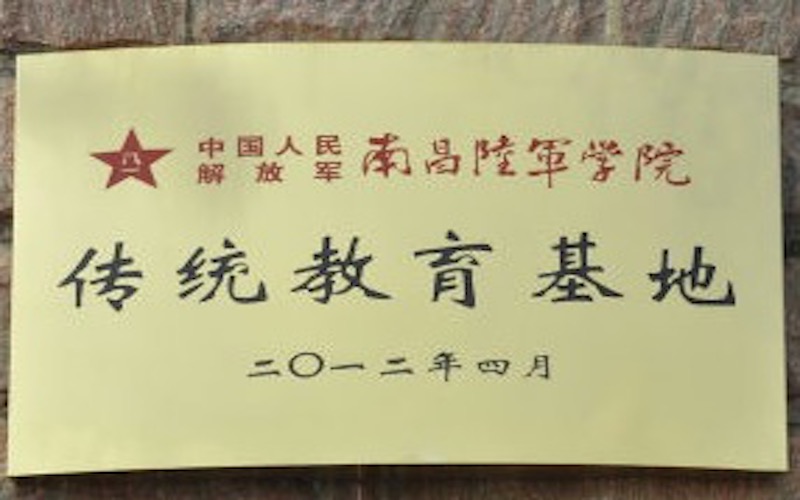 中国人民解放军 南昌陸軍学院
传统教育基地
二〇一二年四月